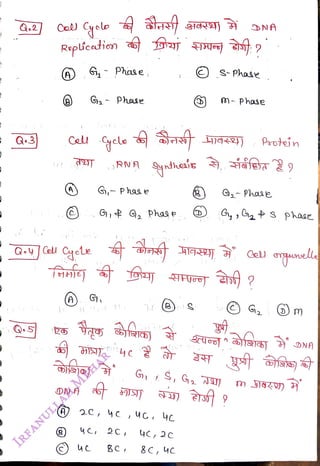 Q.2 Cell Cycle की कौनसी अवस्था में DNA
Replication की क्रिया सम्पन्न होगी ?
(A) G1 - Phase. (C) S-Phase.
(B) G2 - Phase (D) m - Phase
Q.3 Cell Cycle की कौनसी प्रावस्था Protein
तथा RNA Synthesis से संबंधित है ?
(A) G1 - Phase (B) G2 - Phase
(C) G1 & G2 Phase (D) G1, G2 & S Phase
Q.4 Cell Cycle की कौनसी प्रावस्था में Cell organelle
निर्माण की क्रिया सम्पन्न होगी ?
(A) G1 (B) S (C) G2 (D) m
Q.5 एक पैतृक कोशिका से उत्पन्न पुत्री कोशिका में DNA
की मात्रा 4C है तो उस पुत्री कोशिका की
कोशिका में G1, S, G2 तथा m अवस्था में
DNA की मात्रा क्या होगी ?
(A) 2C, 4C, 4C, 4C
(B) 4C, 2C, 4C, 2C
(C) 4C 8C, 8C, 4C
IRFANULLAH MEHAR